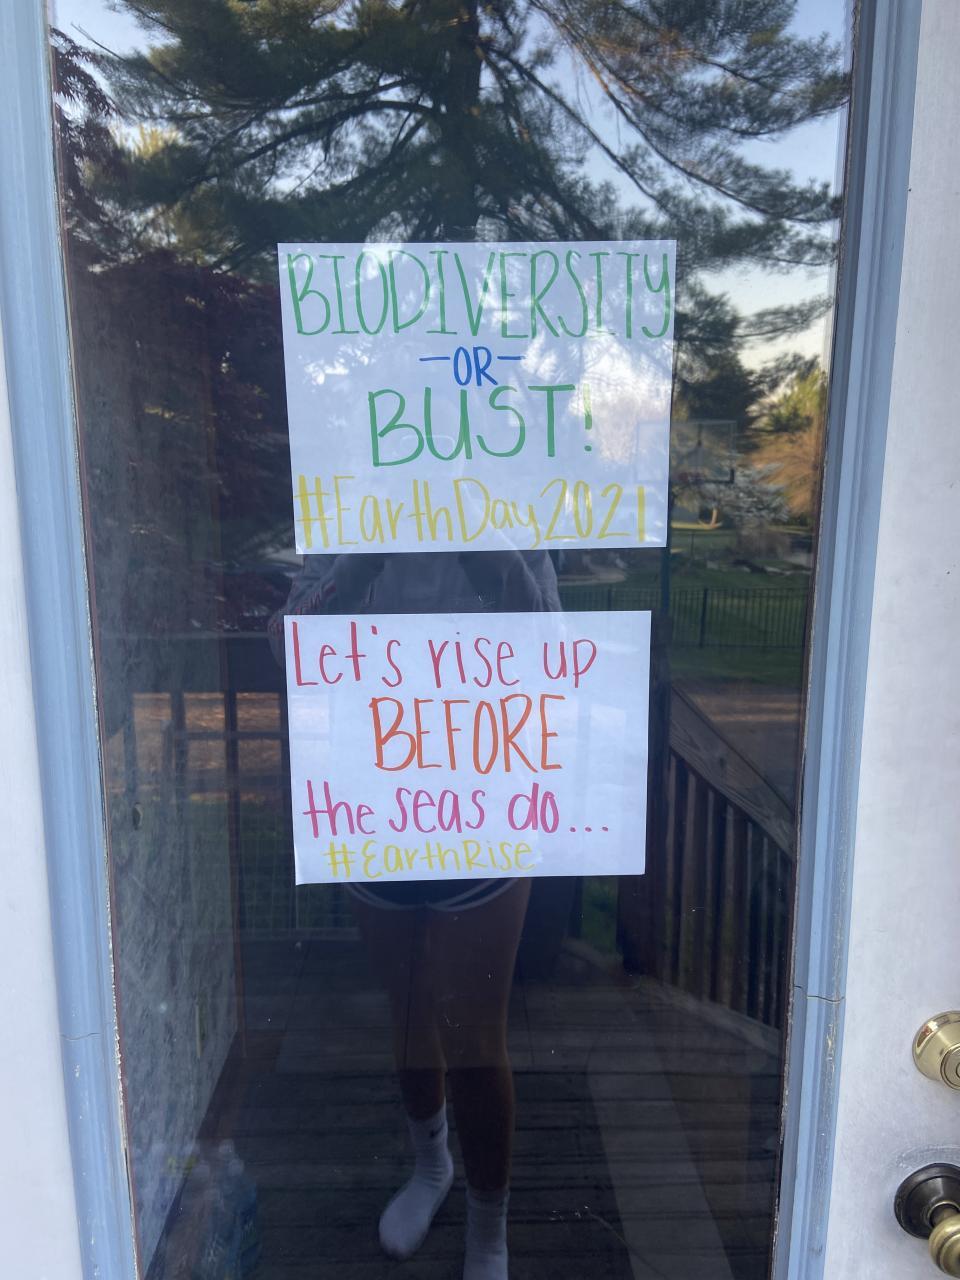 BIODIVERSITY
-OR-
BUST!
#EarthDay2021
Let's rise up
BEFORE
the seas do...
#EarthRise